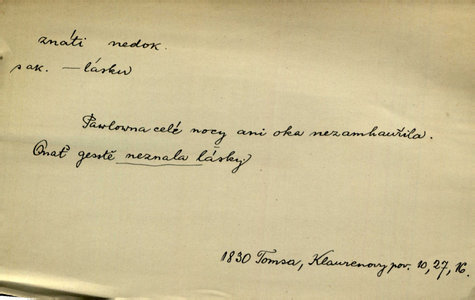 znáti nedok.
s ak. — lásku
Pawlowna celé nocy ani oka nezamhauřila.
Onať gesstě neznala lásky.
1830 Tomsa, Klaurenovy pov. 10, 27, 16.